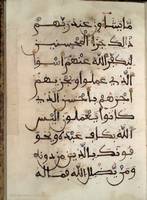 ما يشاءون عند ربهم
ذلك جزاء المحسنين
ليكفر الله عنهم أسوأ
الذي عملوا ويجزيهم
أجرهم بأحسن الذي
كانوا يعملون أليس
الله بكاف عبده ويخو
فونك بالذين من دونه
ومن يضلل الله فما له